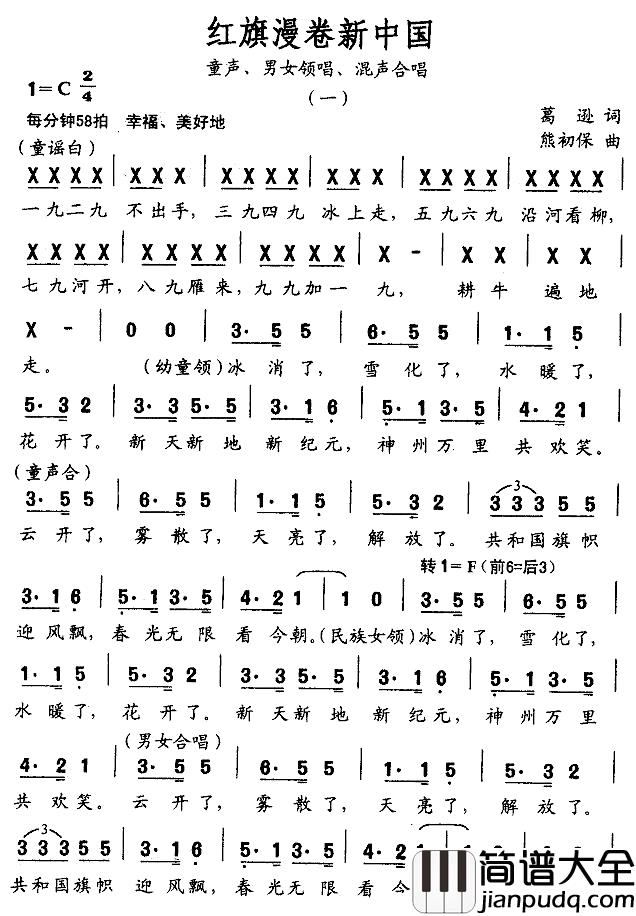 红旗漫卷新中国
童声、男女领唱、混声合唱
1=C 2/4
（一）
每分钟58拍 幸福、美好地
葛逊 词
熊初保 曲
（童谣白）
X X X X | X X X | X X X X | X X X | X X X X | X X X X |
一九二九 不出手，三九四九 冰上走，五九六九 沿河看柳，
X X X X | X X X X | X X X X | X - | X X | X X |
七九河开，八九雁来，九九加一 九， 耕牛 遍地
X - | 0 0 | 3· 5 5 | 6· 5 5 | 1· 1 5 |
走。 （幼童领）冰消了， 雪化了， 水暖了，
5· 3 2 | 3· 3 5· 5 | 3· 1 6 | 5· 1 3· 5 | 4· 2 1 |
花开了。新天新地 新纪元，神州万里 共欢笑。
（童声合）
3· 5 5 | 6· 5 5 | 1· 1 5 | 5· 3 2 | 3 3 3 5 5 |
云开了，雾散了，天亮了，解放了。共和国旗帜
转1=F（前6=后3）
3· 1 6 | 5· 1 3· 5 | 4· 2 1 | 1 0 | 3· 5 5 | 6· 5 5 |
迎风飘，春光无限 看今朝。（民族女领）冰消了，雪化了，
1· 1 5 | 5· 3 2 | 3· 3 5· 5 | 3· 1 6 | 5· 1 3· 5 |
水暖了，花开了。新天新地 新纪元，神州万里
（男女合唱）
4· 2 1 | 3· 5 5 | 6· 5 5 | 1· 1 5 | 5· 3 2 |
共欢笑。云开了，雾散了，天亮了，解放了。
3 3 3 5 5 | 3· 1 6 | 5· 1 3· 5 | 4· 2
共和国旗帜 迎风飘，春光无限 看今
简谱大全
jianpudq.com